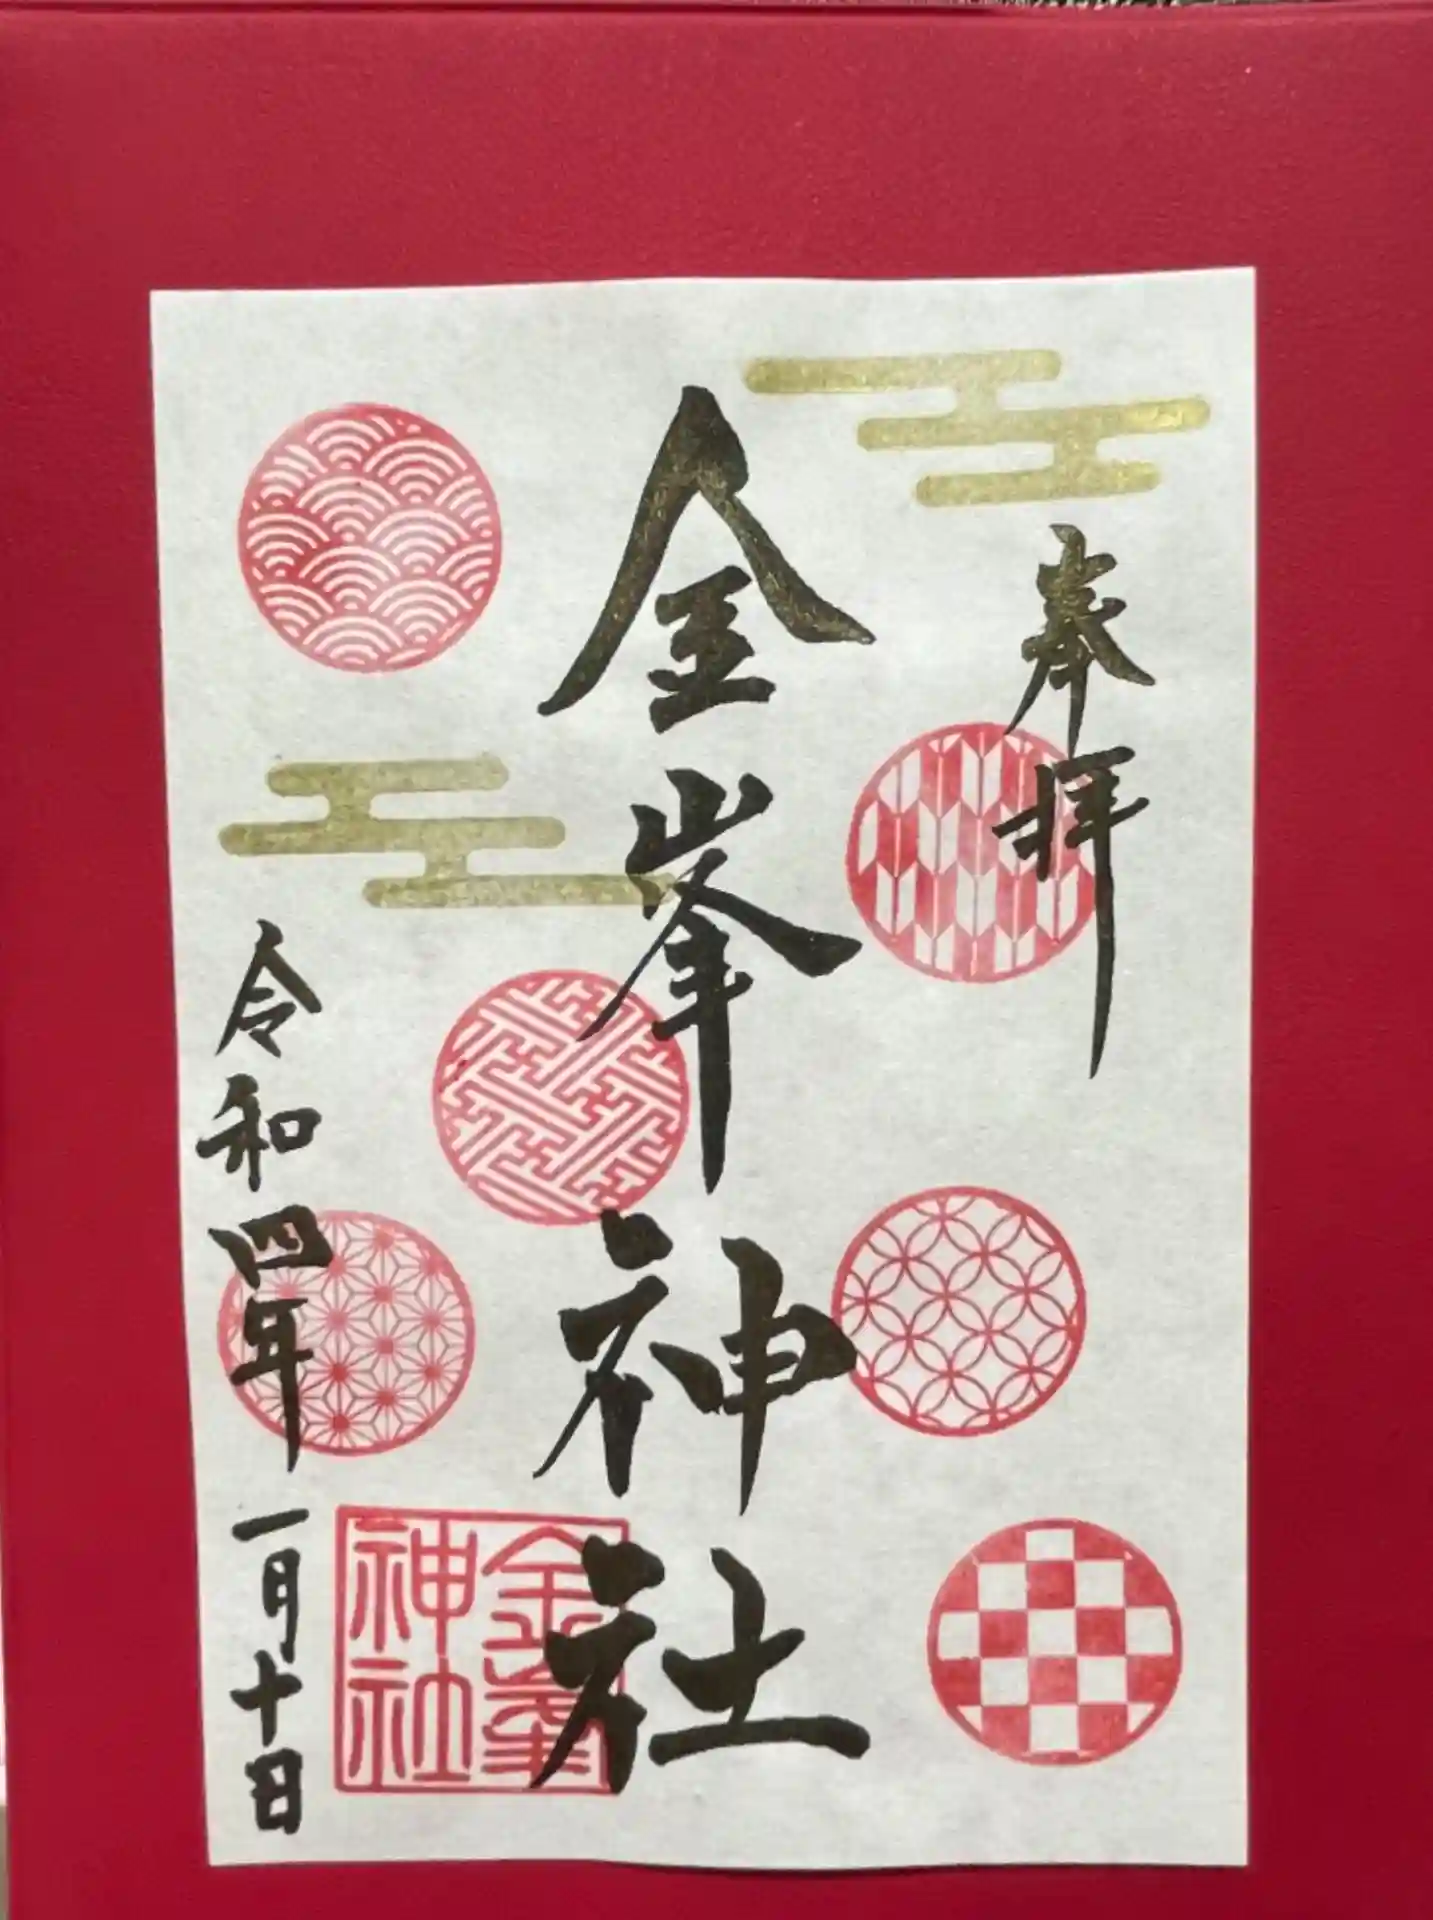 奉拝
金峯神社
金峯
神社
令和四年一月十日